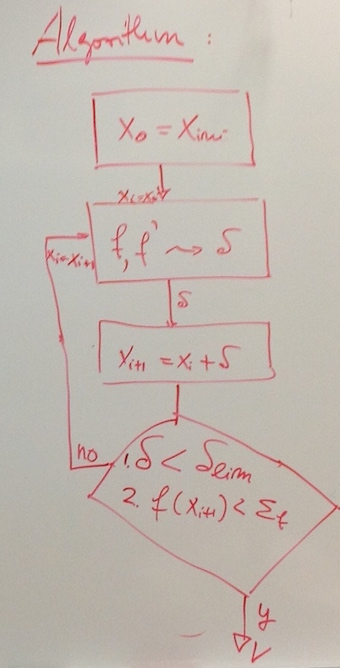 Algorithm :
x₀ = xᵢₙᵢ.
f, f' ⇝ δ
xᵢ=xᵢ₊₁
δ
xᵢ₊₁ = xᵢ + δ
no
1. δ < δₗᵢₘ
2. f(xᵢ₊₁) < Σf
y